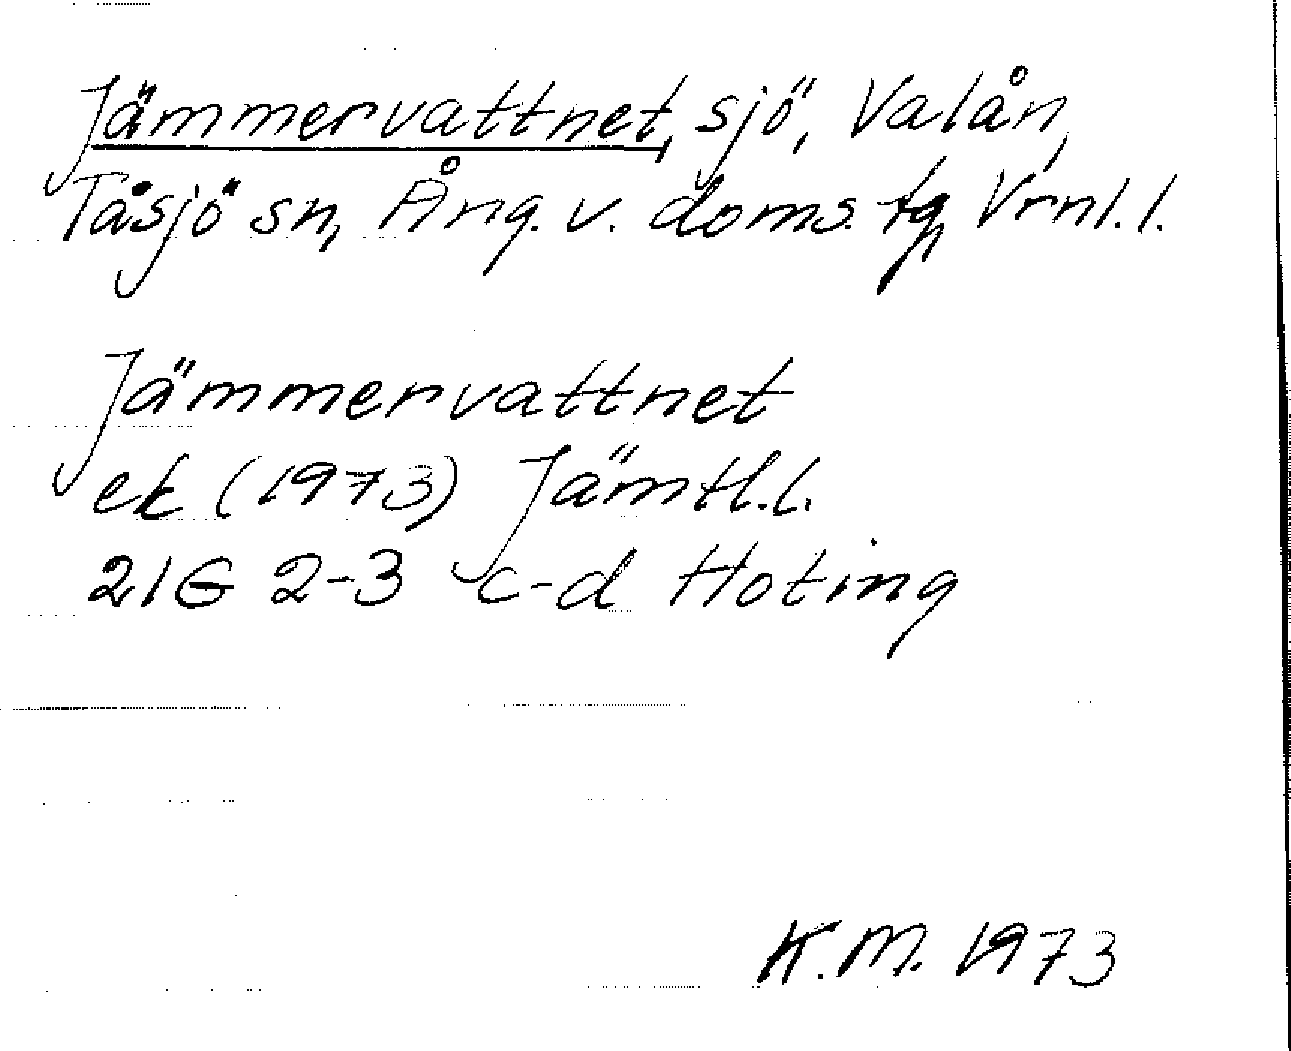 Jämmervattnet, sjö, Valån,
Tåsjö sn, Ång. v. doms. tg, Vrnl. l.
Jämmervattnet
ek (1973) Jämtl. l.
21G 2-3 c-d Hoting
K.M. 1973